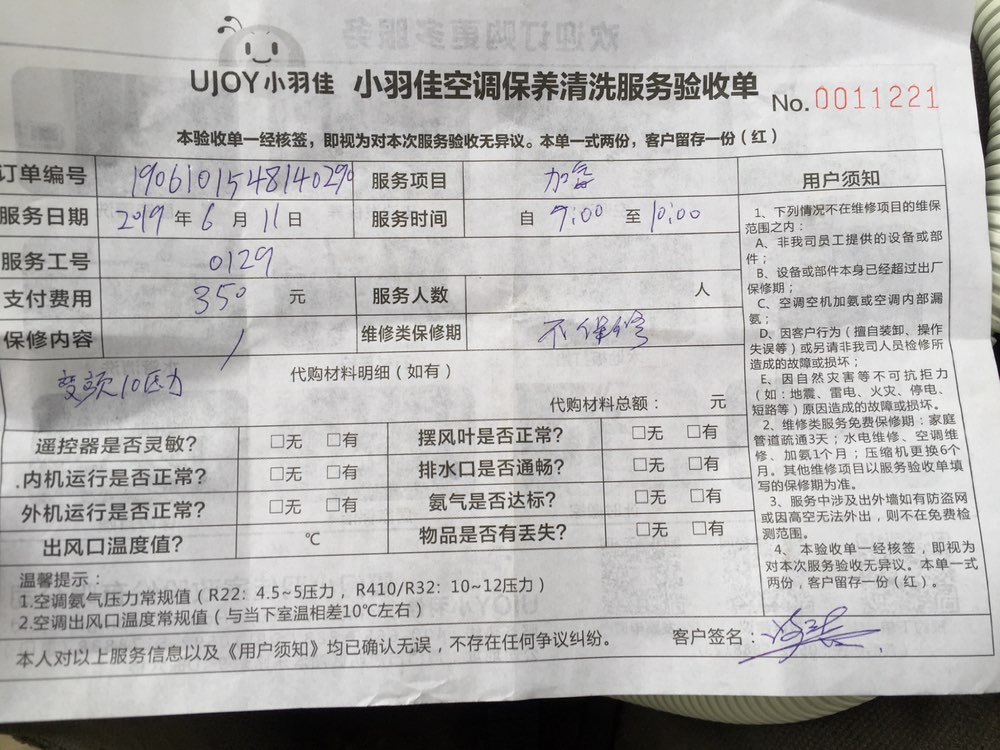 UJOY小羽佳 小羽佳空调保养清洗服务验收单 No.0011221
本验收单一经核签，即视为对本次服务验收无异议。本单一式两份，客户留存一份（红）
订单编号 190610154814029 服务项目
服务日期 2019年6月11日 服务时间 自 9:00 至 10:00
服务工号 0129
支付费用 350 元 服务人数 人
保修内容 / 维修类保修期 不保修
变频10压力
代购材料明细（如有）
代购材料总额： 元
遥控器是否灵敏？ □无 □有 摆风叶是否正常？ □无 □有
内机运行是否正常？ □无 □有 排水口是否通畅？ □无 □有
外机运行是否正常？ □无 □有 氨气是否达标？ □无 □有
出风口温度值？ ℃ 物品是否有丢失？ □无 □有
温馨提示：
1.空调氨气压力常规值（R22：4.5~5压力，R410/R32：10~12压力）
2.空调出风口温度常规值（与当下室温相差10℃左右）
本人对以上服务信息以及《用户须知》均已确认无误，不存在任何争议纠纷。 客户签名：
用户须知
1、下列情况不在维修项目的维保
范围之内：
A、非我司员工提供的设备或部
件；
B、设备或部件本身已经超过出厂
保修期；
C、空调空机加氨或空调内部漏
氨；
D、因客户行为（擅自装卸、操作
失误等）或另请非我司人员检修所
造成的故障或损坏；
E、因自然灾害等不可抗拒力
（如：地震、雷电、火灾、停电、
短路等）原因造成的故障或损坏。
2、维修类服务免费保修期：家庭
管道疏通3天；水电维修、空调维
修、加氨1个月；压缩机更换6个
月。其他维修项目以服务验收单填
写的保修期为准。
3、服务中涉及出外墙如有防盗网
或因高空无法外出，则不在免费检
测范围。
4、本验收单一经核签，即视为
对本次服务验收无异议。本单一式
两份，客户留存一份（红）。